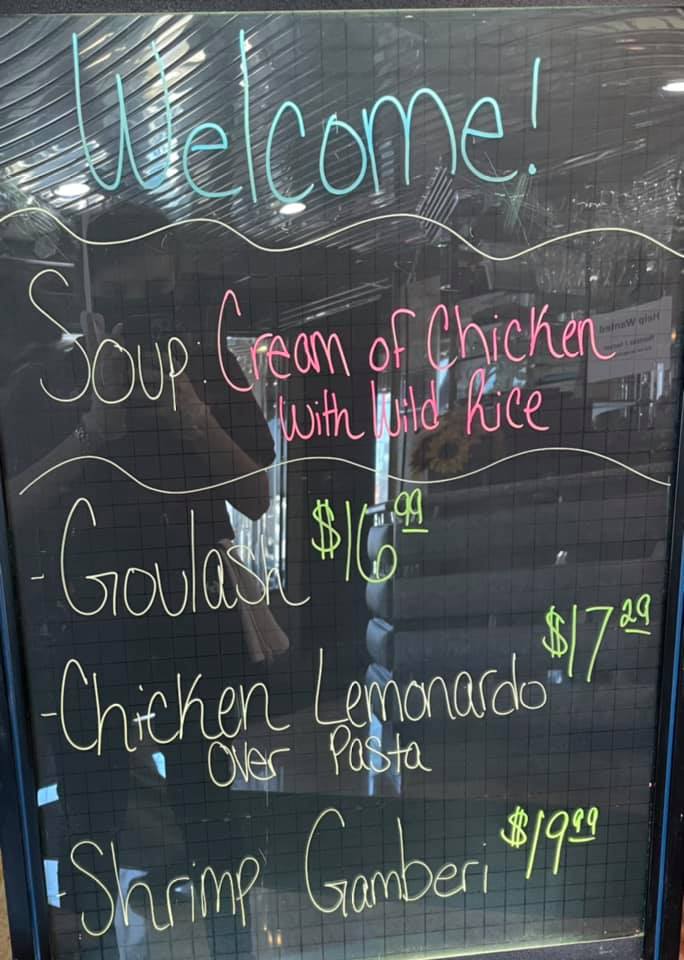 Welcome!
Soup: Cream of Chicken
with Wild Rice
- Goulash $16.99
- Chicken Lemonardo $17.29
over Pasta
- Shrimp Gamberi $19.99
Help Wanted